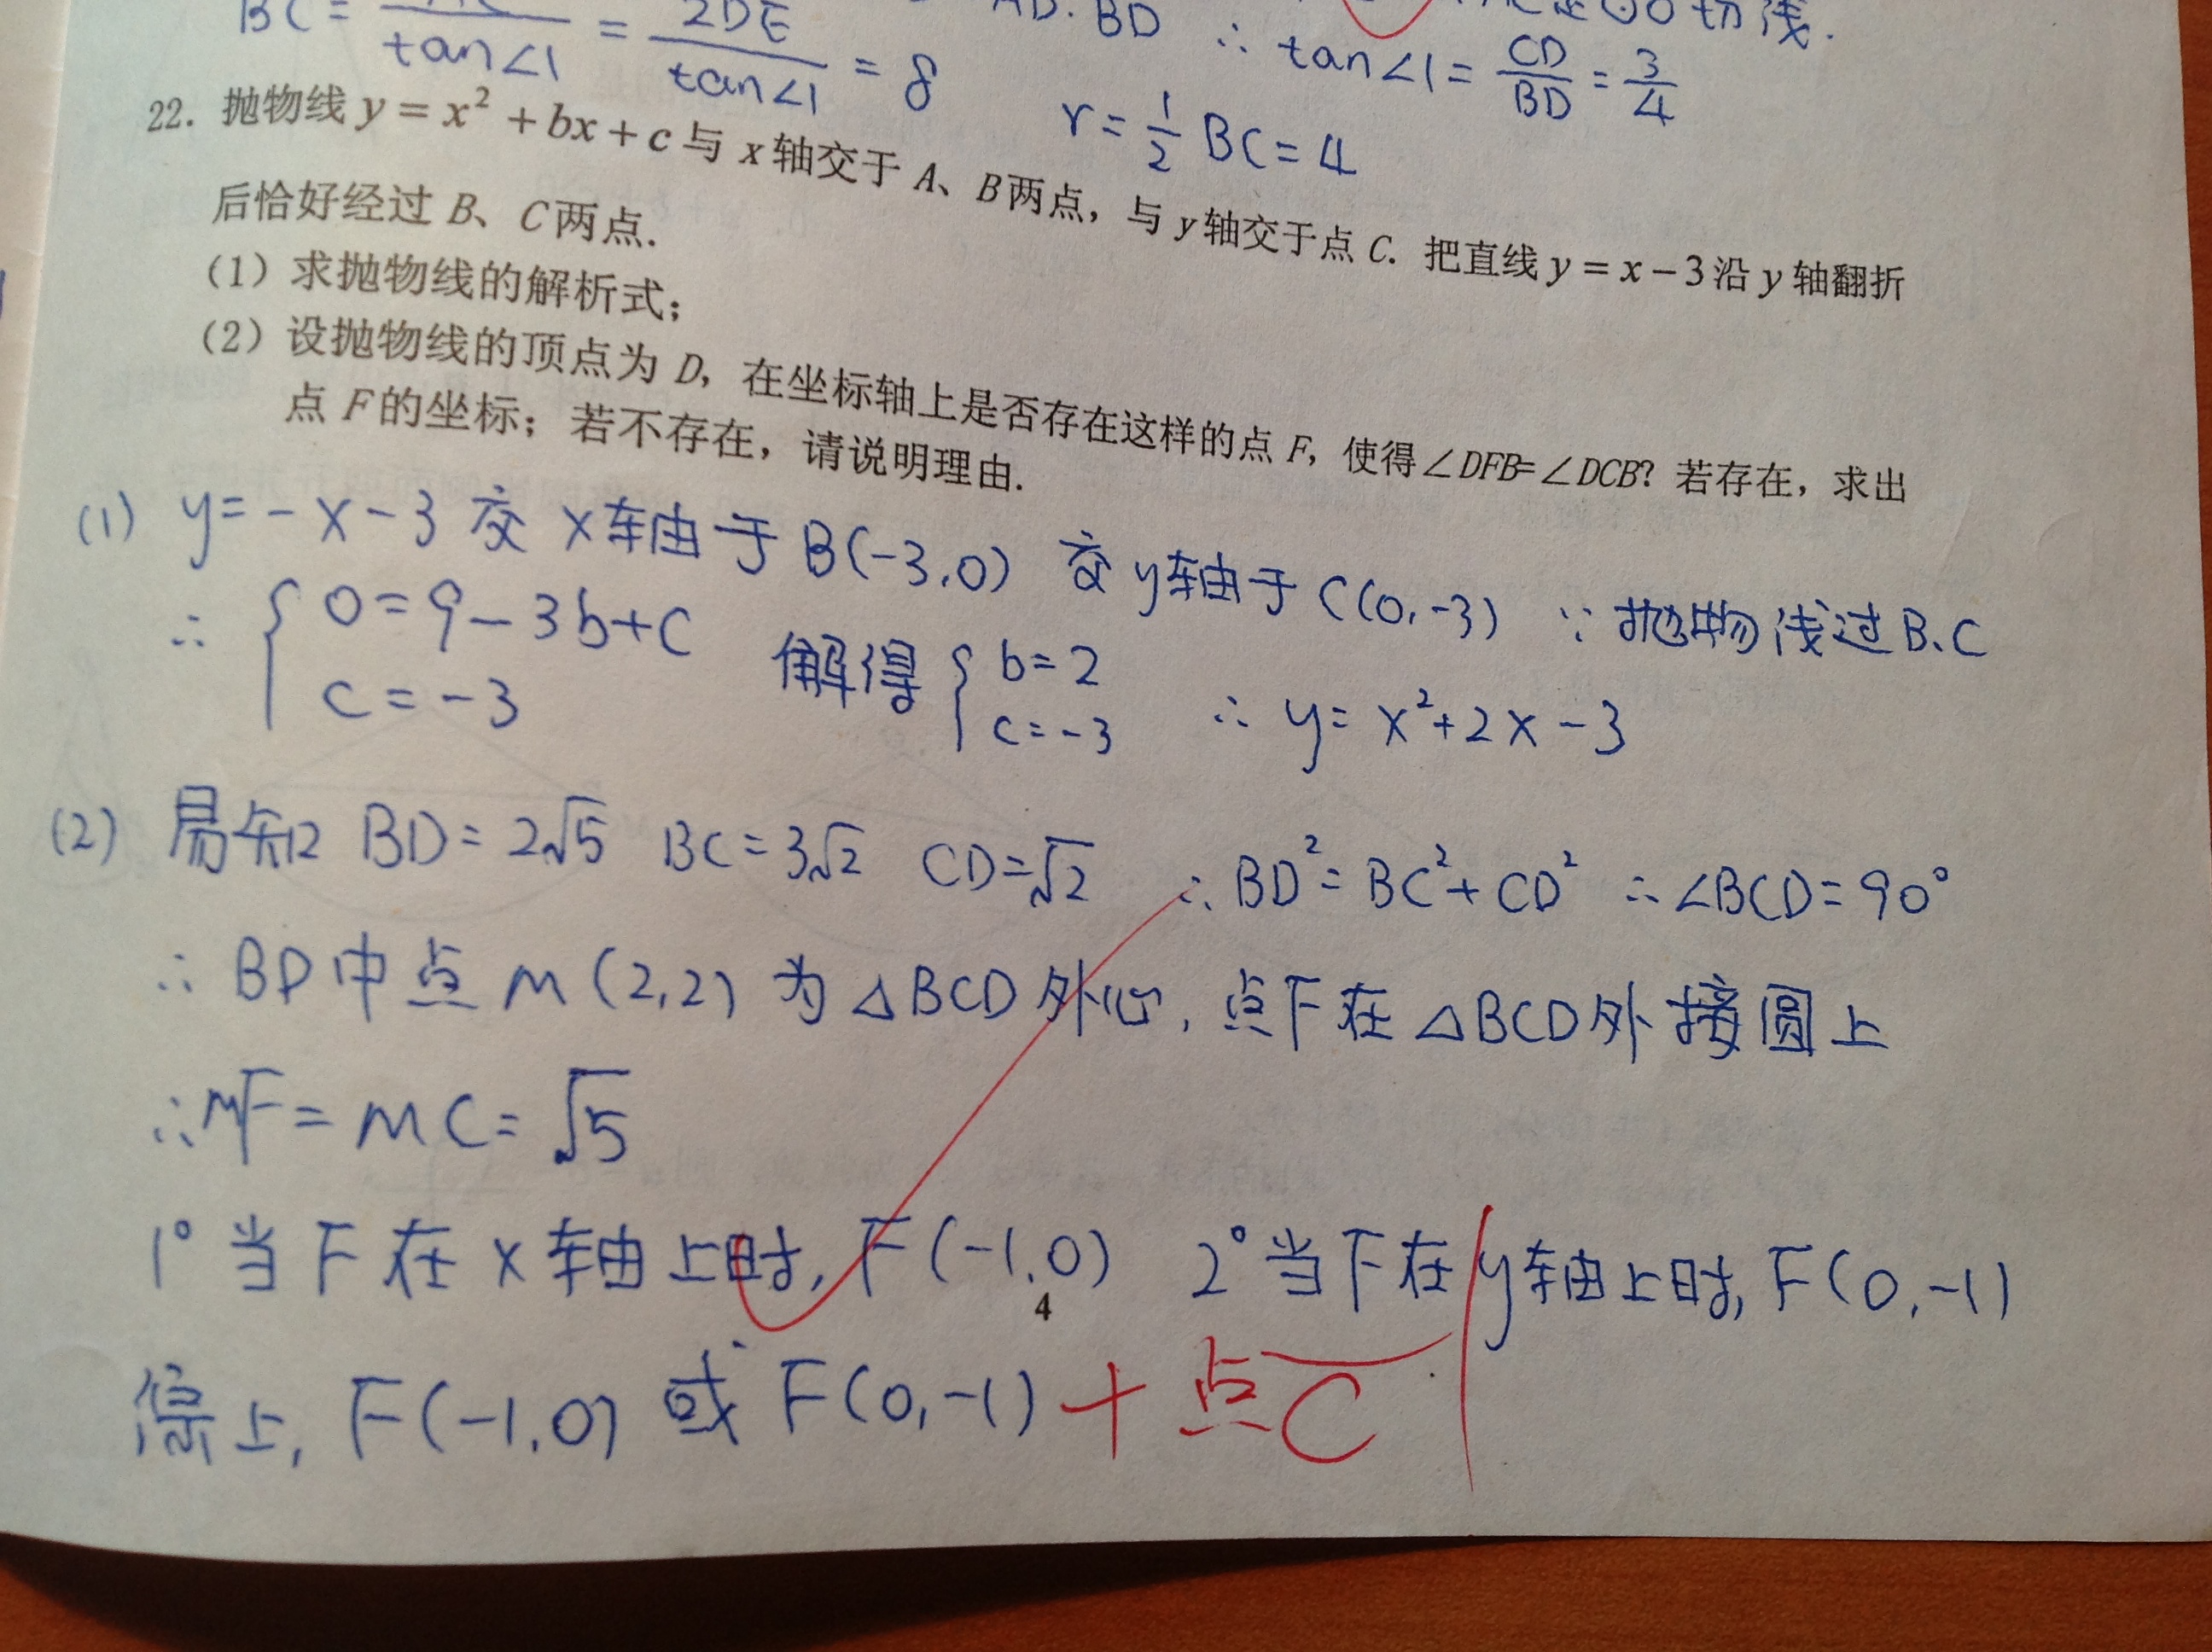 BC = / tan∠1 = 2DE / tan∠1 = 8
AD·BD ∴ tan∠1 = CD/BD = 3/4
切线.
r = 1/2 BC = 4
22. 抛物线 y = x² + bx + c 与 x 轴交于 A、B 两点，与 y 轴交于点 C. 把直线 y = x − 3 沿 y 轴翻折
后恰好经过 B、C 两点.
(1) 求抛物线的解析式；
(2) 设抛物线的顶点为 D，在坐标轴上是否存在这样的点 F，使得∠DFB=∠DCB？若存在，求出
点 F 的坐标；若不存在，请说明理由.
(1) y=-x-3 交 x轴于 B(-3,0) 交 y轴于 C(0,-3) ∵ 抛物线过B、C
∴ { 0=9-3b+c
c=-3
解得 { b=2
c=-3
∴ y= x²+2x-3
(2) 易知 BD=2√5 BC=3√2 CD=√2 ∴BD²=BC²+CD² ∴∠BCD=90°
∴ BD中点 M(2,2) 为△BCD外心, 点F在△BCD外接圆上
∴MF=MC=√5
1° 当F在x轴上时, F(-1,0) 2° 当F在y轴上时, F(0,-1)
综上, F(-1,0) 或 F(0,-1) + 点C
4